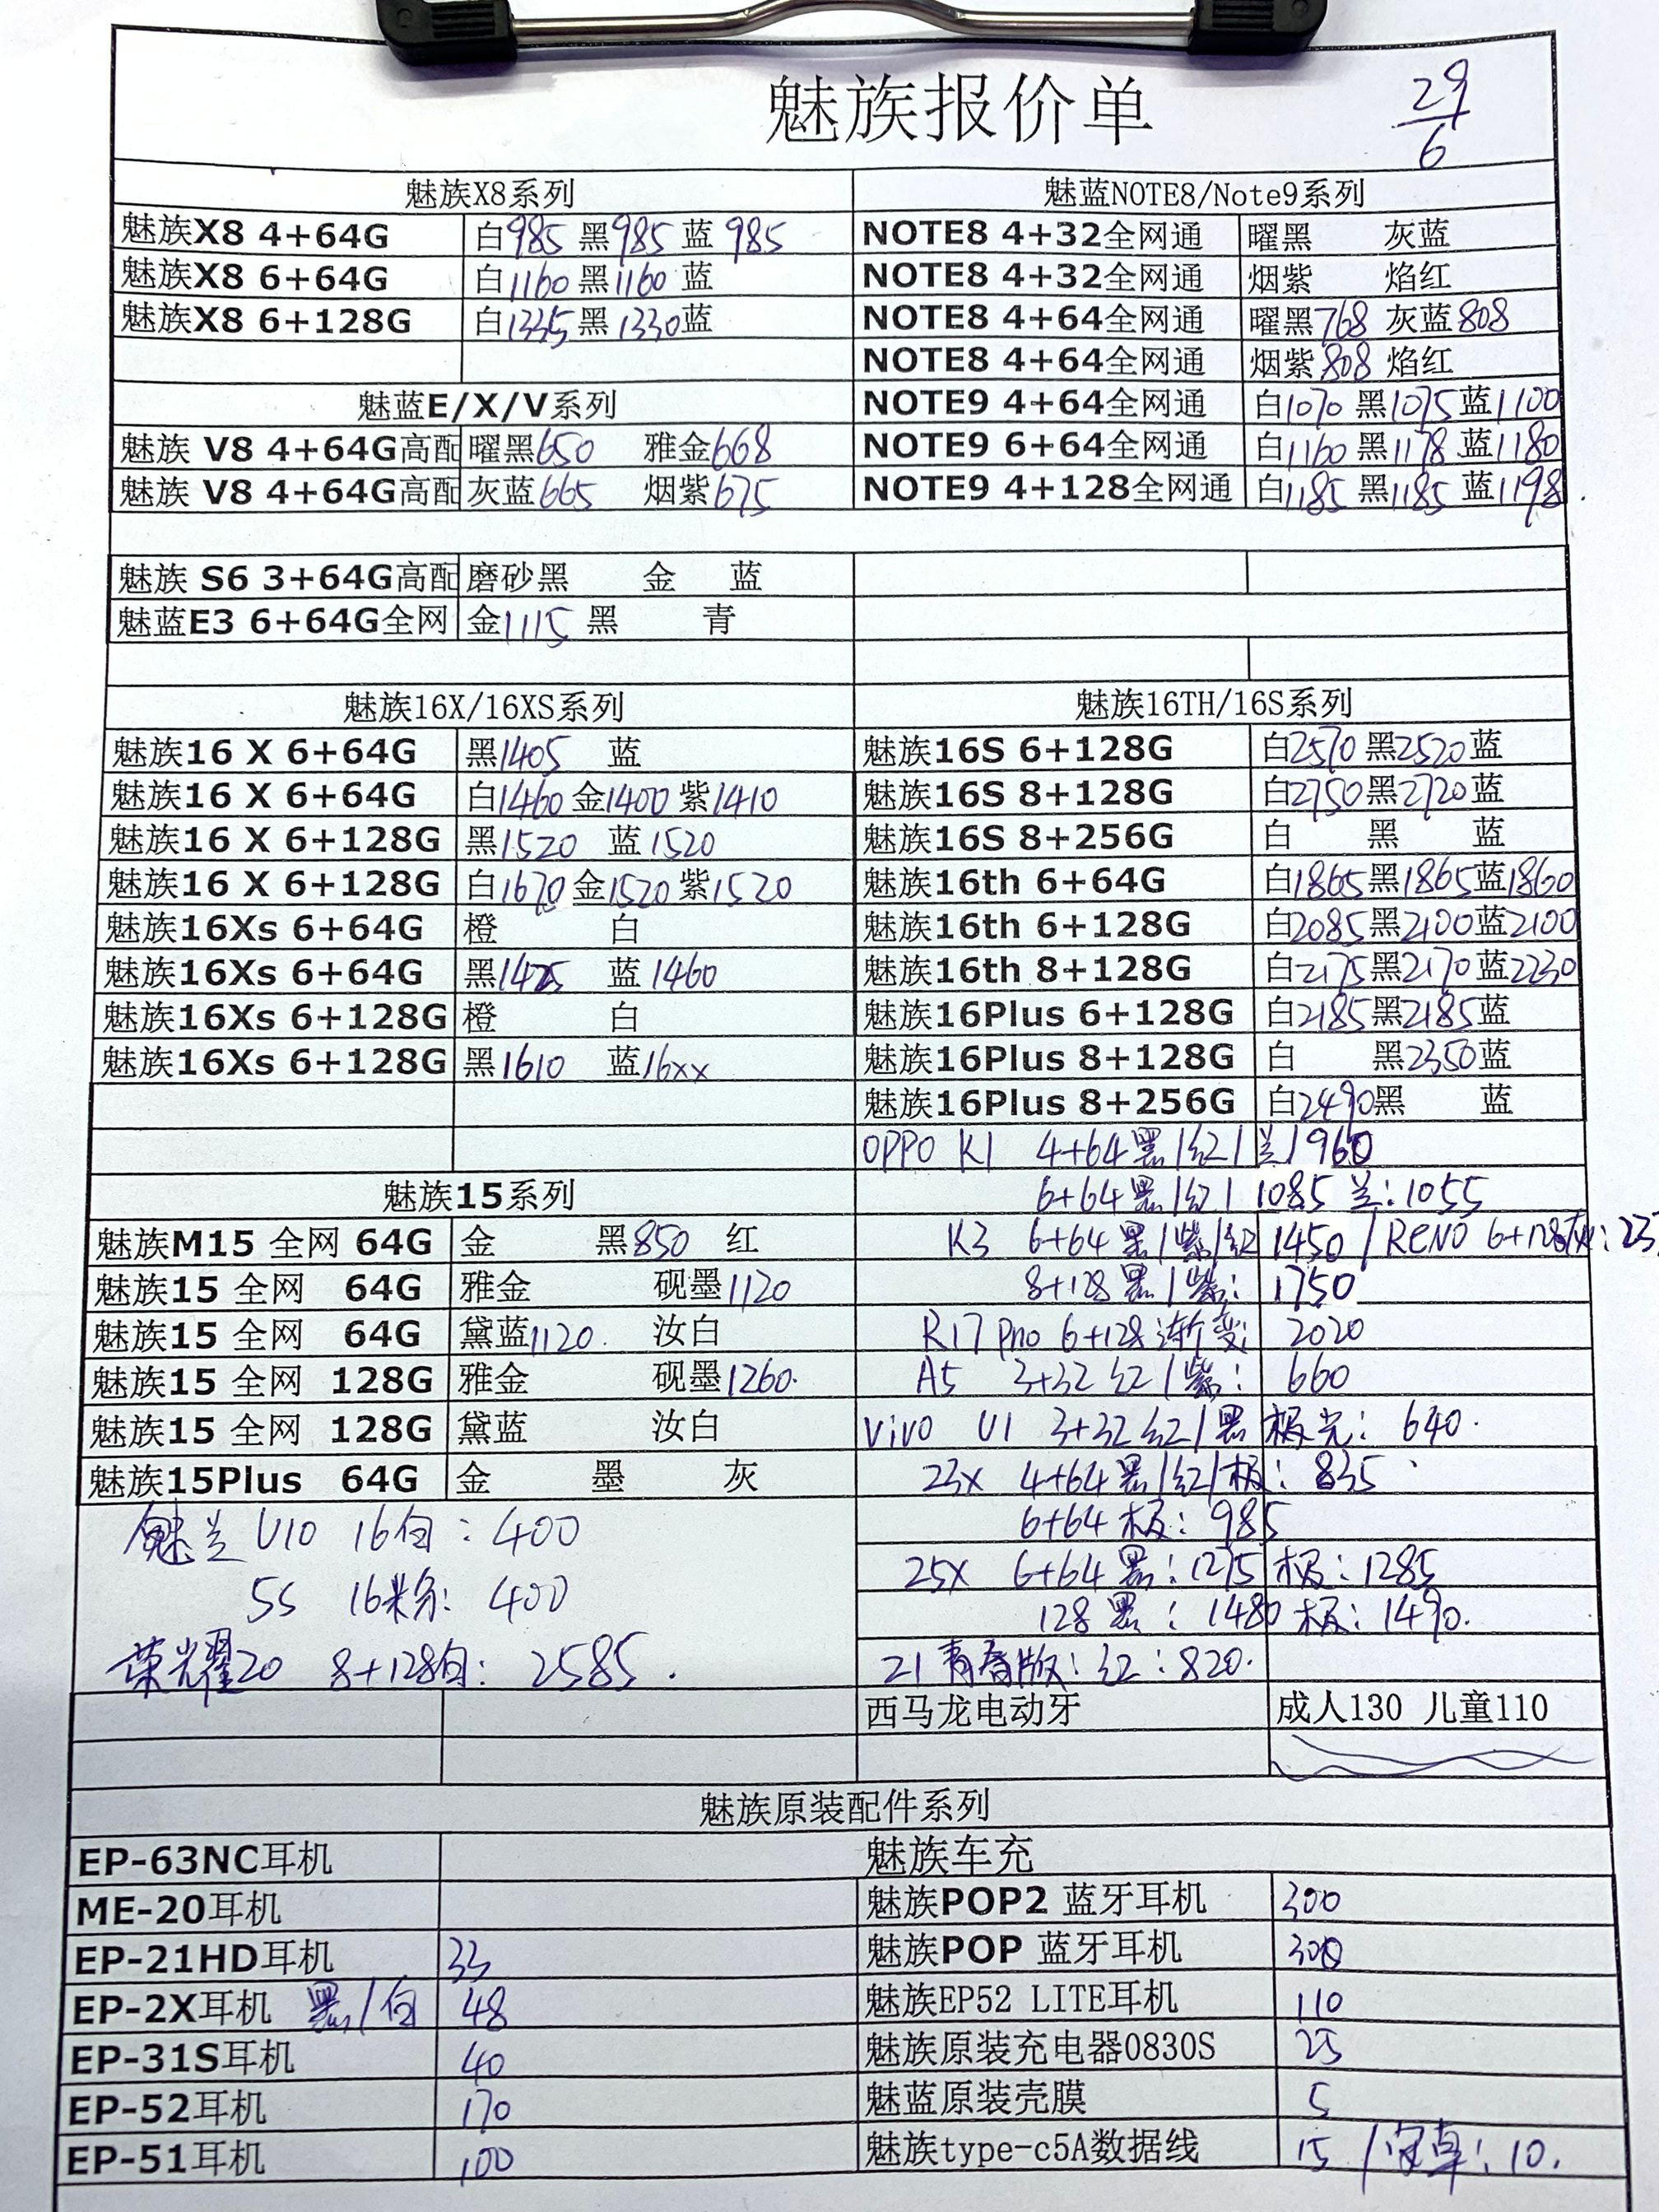 魅族报价单
29/6
魅族X8系列
魅族X8 4+64G 白985 黑985 蓝985
魅族X8 6+64G 白1160 黑1160 蓝
魅族X8 6+128G 白1335 黑1330 蓝
魅蓝E/X/V系列
魅族 V8 4+64G高配 曜黑650 雅金668
魅族 V8 4+64G高配 灰蓝665 烟紫675
魅族 S6 3+64G高配 磨砂黑 金 蓝
魅蓝E3 6+64G全网 金1115 黑 青
魅蓝NOTE8/Note9系列
NOTE8 4+32全网通 曜黑 灰蓝
NOTE8 4+32全网通 烟紫 焰红
NOTE8 4+64全网通 曜黑768 灰蓝808
NOTE8 4+64全网通 烟紫808 焰红
NOTE9 4+64全网通 白1070 黑1075 蓝1100
NOTE9 6+64全网通 白1160 黑1178 蓝1180
NOTE9 4+128全网通 白1185 黑1185 蓝1198.
魅族16X/16XS系列
魅族16 X 6+64G 黑1405 蓝
魅族16 X 6+64G 白1460 金1400 紫1410
魅族16 X 6+128G 黑1520 蓝1520
魅族16 X 6+128G 白1670 金1520 紫1520
魅族16Xs 6+64G 橙 白
魅族16Xs 6+64G 黑1425 蓝1460
魅族16Xs 6+128G 橙 白
魅族16Xs 6+128G 黑1610 蓝16xx
魅族16TH/16S系列
魅族16S 6+128G 白2570 黑2520 蓝
魅族16S 8+128G 白2750 黑2720 蓝
魅族16S 8+256G 白 黑 蓝
魅族16th 6+64G 白1865 黑1865 蓝1860
魅族16th 6+128G 白2085 黑2100 蓝2100
魅族16th 8+128G 白2175 黑2170 蓝2230
魅族16Plus 6+128G 白2185 黑2185 蓝
魅族16Plus 8+128G 白 黑2350 蓝
魅族16Plus 8+256G 白2490 黑 蓝
魅族15系列
魅族M15 全网 64G 金 黑850 红
魅族15 全网 64G 雅金 砚墨1120
魅族15 全网 64G 黛蓝1120. 汝白
魅族15 全网 128G 雅金 砚墨1260.
魅族15 全网 128G 黛蓝 汝白
魅族15Plus 64G 金 墨 灰
魅兰 U10 16白：400
5S 16粉：400
荣耀20 8+128白：2585.
OPPO K1 4+64 黑/红/兰/960
6+64 黑/红/1085 兰：1055
K3 6+64 黑/紫/红 1450 / RENO 6+128灰：23
8+128 黑/紫：1750
R17 pro 6+128 渐变 2020
A5 3+32 红/紫：660
vivo U1 3+32 红/黑 极光：640.
Z3X 4+64 黑/红/极：835
6+64 极：985
Z5X 6+64 黑：1275 极：1285
128 黑：1480 极：1490.
Z1青春版：红：820.
西马龙电动牙 成人130 儿童110
魅族原装配件系列
EP-63NC耳机
ME-20耳机
EP-21HD耳机 33
EP-2X耳机 黑/白 48
EP-31S耳机 40
EP-52耳机 170
EP-51耳机 100
魅族车充
魅族POP2 蓝牙耳机 300
魅族POP 蓝牙耳机 300
魅族EP52 LITE耳机 110
魅族原装充电器0830S 25
魅蓝原装壳膜 5
魅族type-c5A数据线 15 /安卓：10.